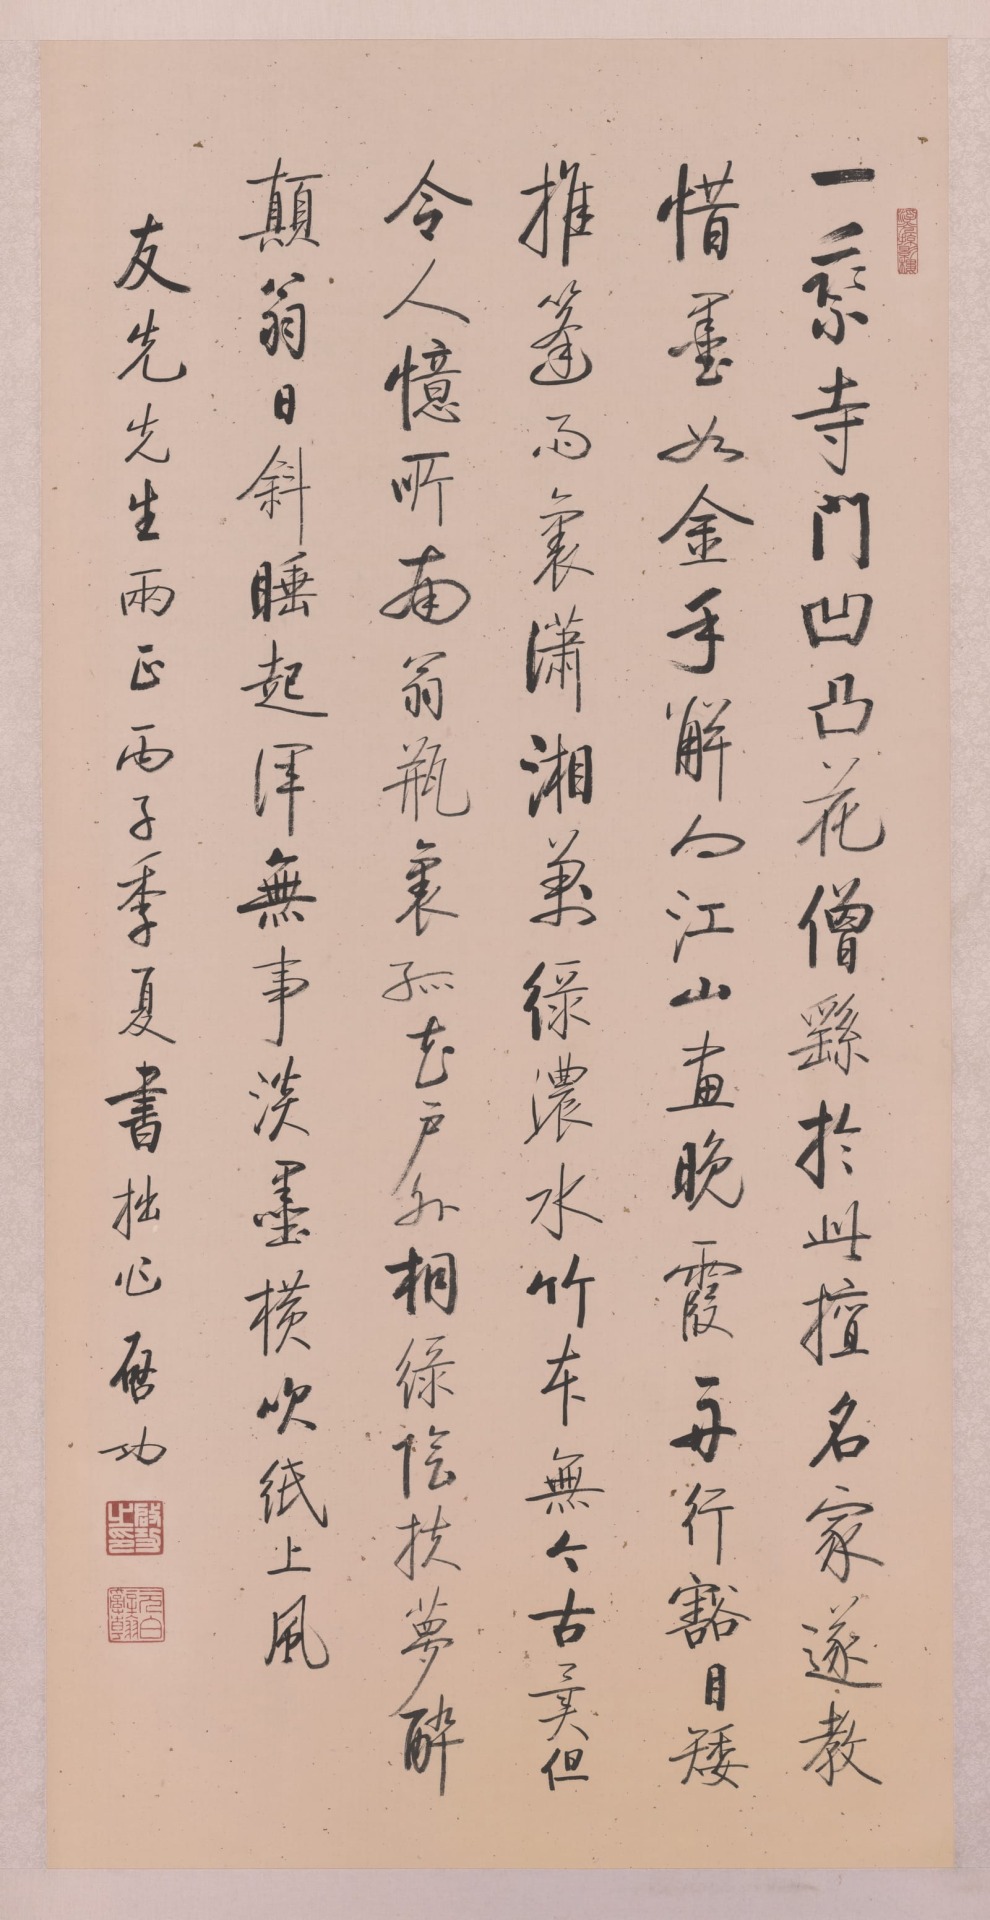 浮光掠影樓
一乘寺門凹凸花僧繇於此擅名家遂教
惜墨如金手解向江山畫晚霞舟行豁目矮
推篷雨裏瀟湘萬綠濃水竹本無今古異但
令人憶所南翁瓶裏孤花戶外桐綠陰扶夢醉
顛翁日斜睡起渾無事淡墨橫吹紙上風
友先先生兩正丙子季夏書拙作 啓功
啓功之印